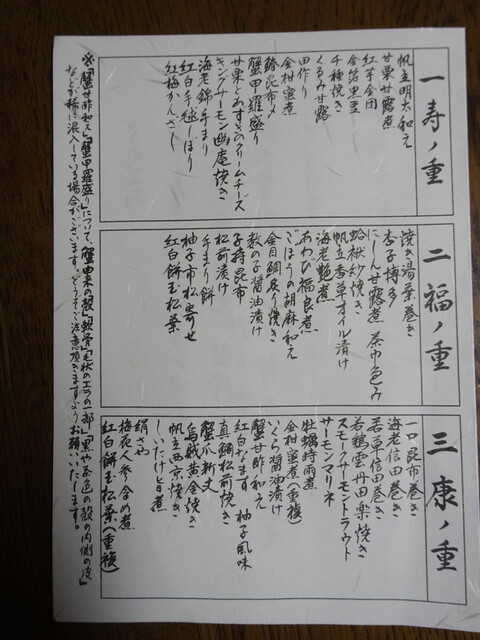 一 寿ノ重
帆立明太和え
甘栗甘露煮
紅芋金団
金箔黒豆
千種焼き
くるみ甘露
田作り
金柑蜜煮
鯵昆布〆
蟹甲羅盛り
甘栗とあずきのクリームチーズ
キングサーモン幽庵焼き
海老錦手まり
紅白手毬しぼり
紅梅かんざし
二 福ノ重
焼き湯葉巻き
杏子博多
にしん甘露煮 茶巾包み
蛤袱紗焼き
帆立香草オイル漬け
海老艶煮
あわび福良煮
ごぼうの胡麻和え
金目鯛炙り焼き
数の子醤油漬け
子持昆布
松前漬け
手まり餅
柚子市松寄せ
紅白餅玉松葉
三 康ノ重
一口昆布巻き
海老信田巻き
若草信田巻き
若鶏雲丹田楽焼き
スモークサーモントラウト
サーモンマリネ
牡蠣時雨煮
金柑蜜煮(重複)
いくら醤油漬け
蟹甘酢和え
紅白なます 柚子風味
真鯛松前焼き
蟹爪新丈
烏賊黄金焼き
帆立西京焼き
しいたけ旨煮
絹さや
梅花人参含め煮
紅白餅玉松葉(重複)
※「蟹甘酢和え」「蟹甲羅盛り」について、蟹由来の殻「軟骨」「毛状のエラの一部」「黒や茶色の殻の内側の皮」
などが稀に混入している場合がございます。どうぞご注意頂きますようお願いいたします。